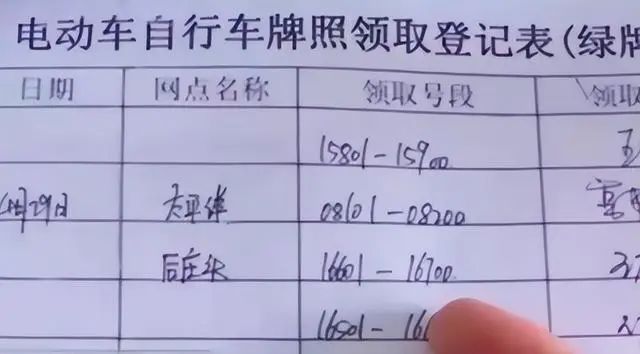 电动车自行车牌照领取登记表(绿牌
日期 网点名称 领取号段 领取
15801-15900
月29日 太平洋 08101-08200
16601-16700
16501-